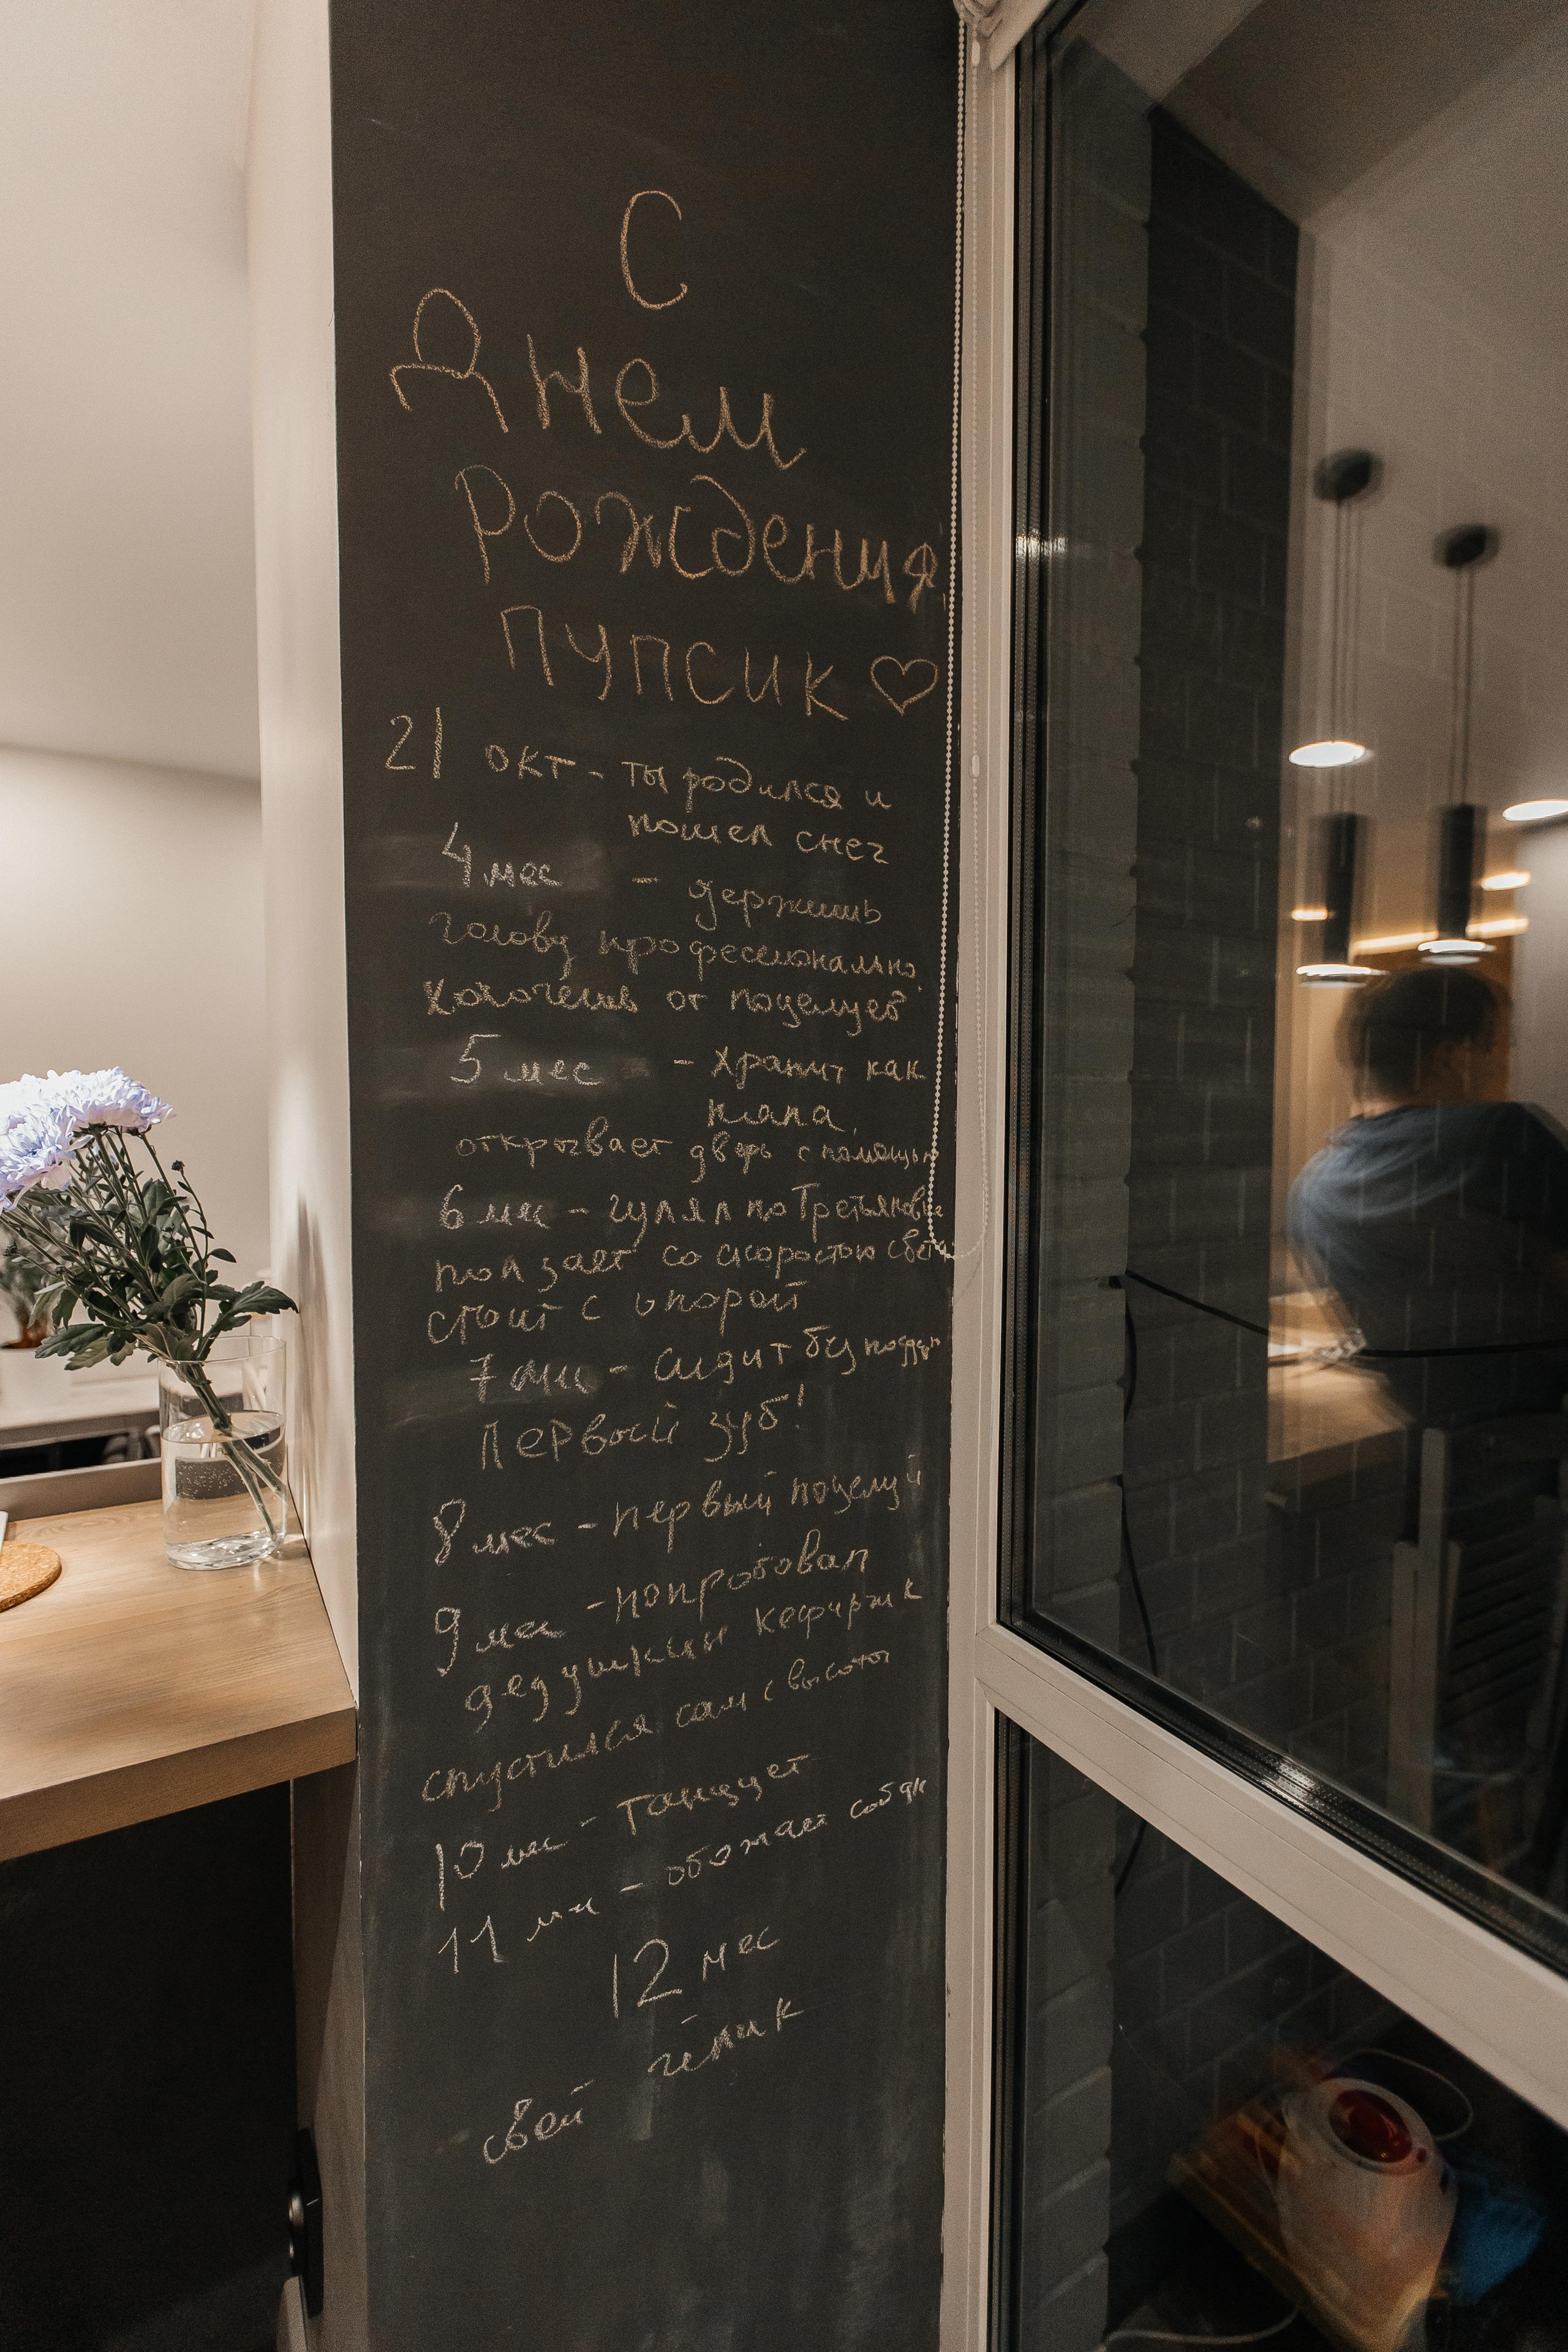 С
Днем
Рождения,
пупсик
21 окт - ты родился и
пошел снег
4 мес - держишь
голову профессионально,
хохочешь от поцелуев
5 мес - храпит как
папа,
открывает дверь с помощью
6 мес - гулял по Третьяковке
ползает со скоростью света
стоит с опорой
7 мес - сидит без
Первый зуб!
8 мес - первый поцелуй
9 мес - попробовал
дедушкин кефирчик
спустился сам с высоты
10 мес - танцует
11 мес - обожает собак
12 мес
свой